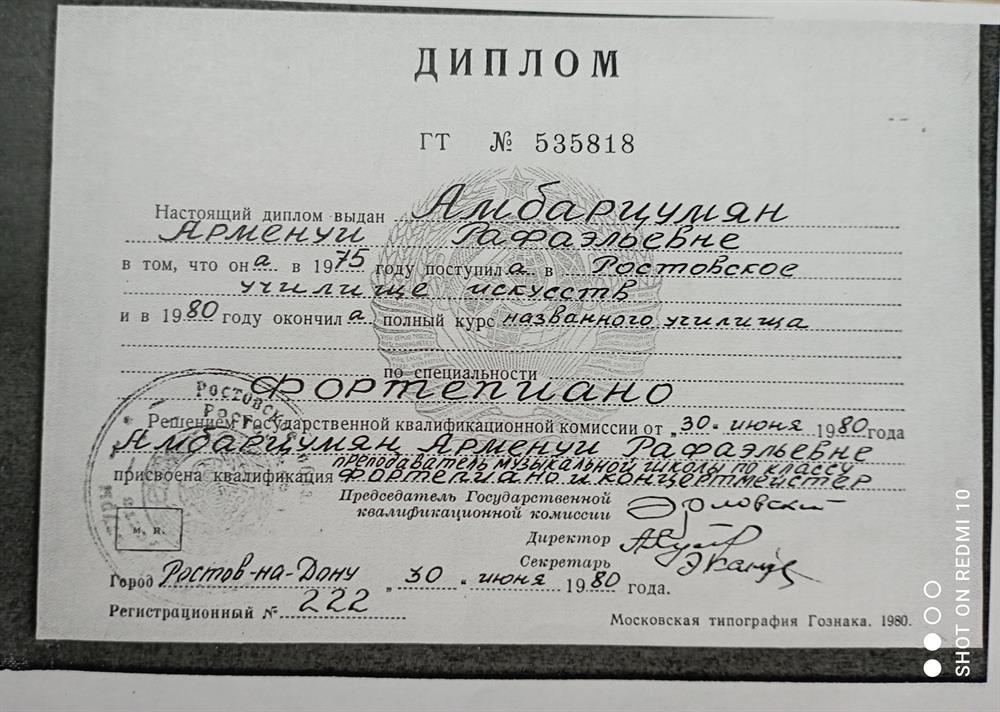 ДИПЛОМ
ГТ № 535818
Настоящий диплом выдан Амбарцумян
Арменуи Рафаэльевне
в том, что он а в 1975 году поступил а в Ростовское
училище искусств
и в 1980 году окончил а полный курс названного училища
по специальности
фортепиано
Решением Государственной квалификационной комиссии от „30“ июня 1980 года
Амбарцумян Арменуи Рафаэльевне
преподаватель музыкальной школы по классу
присвоена квалификация фортепиано и концертмейстер
Председатель Государственной
квалификационной комиссии Орловский
Директор
Секретарь
М. П.
Город Ростов-на-Дону „30“ июня 1980 года.
Регистрационный № 222
Московская типография Гознака. 1980.
РОСТОВСК
SHOT ON REDMI 10